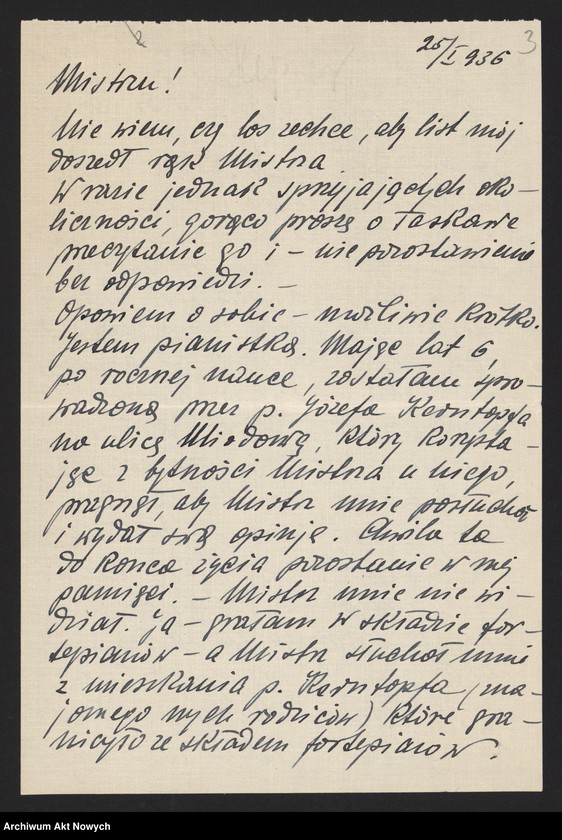 2
3
25/I 936
Mistrzu!
Nie wiem, czy los zechce, aby list mój
doszedł rąk Mistrza
W razie jednak sprzyjających oko-
liczności, gorąco proszę o łaskawe
przeczytanie go i – nie pozostawienie
bez odpowiedzi. –
Opowiem o sobie – możliwie krótko.
Jestem pianistką. Mając lat 6,
po rocznej nauce, zostałam spro-
wadzoną przez p. Józefa Kerntopfa
na ulicę Miodową, który korzysta-
jąc z bytności Mistrza u niego,
pragnął, aby Mistrz mnie posłuchał
i wydał swą opinję. Chwila ta
do końca życia pozostanie w mej
pamięci. – Mistrz mnie nie wi-
dział. Ja – grałam w składzie for-
tepianów – a Mistrz słuchał mnie
z mieszkania p. Kerntopfa (zna-
jomego mych rodziców) które gra-
niczyło ze składem fortepianów.
Archiwum Akt Nowych